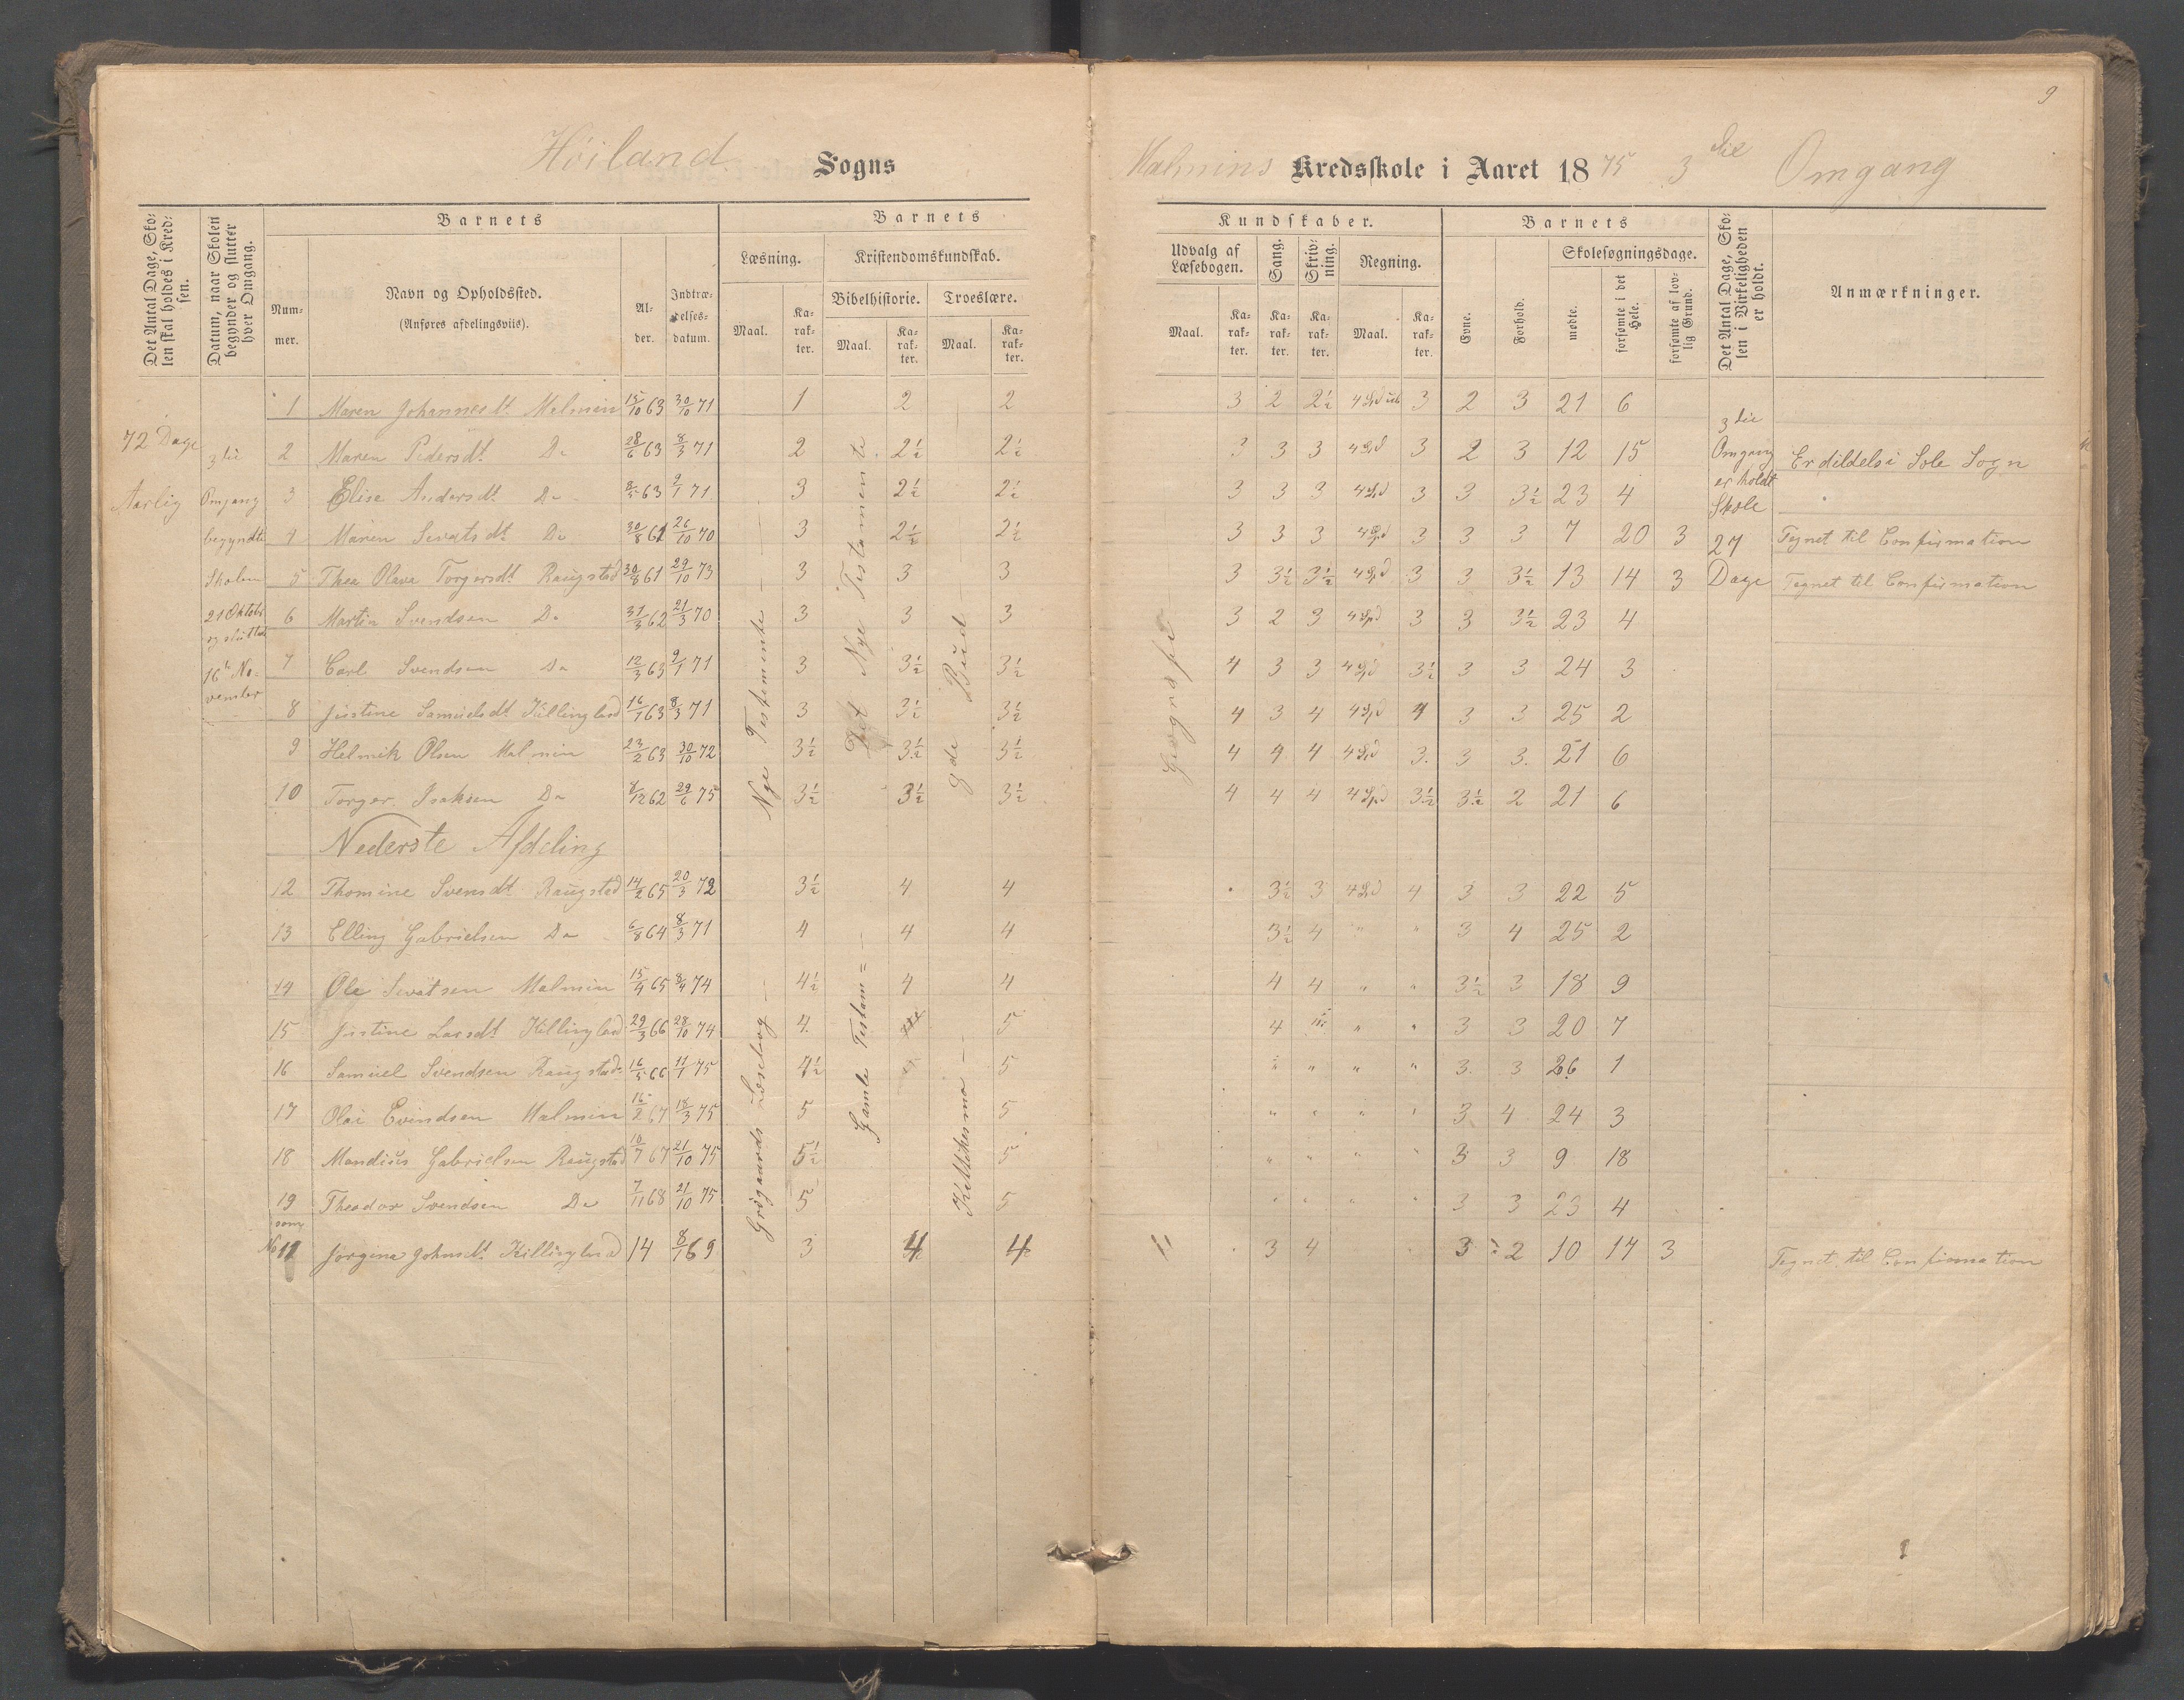 9
Höiland Sogns
Malmins Kredsskole i Aaret 1875 3die Omgang
Det Antal Dage, Skolen skal holdes i Kredsen.
Datum, naar Skolen begynder og slutter hver Omgang.
Barnets
Nummer.
Navn og Opholdssted.
(Anføres afdelingsviis).
Alder.
Indtrædelsesdatum.
Barnets
Læsning.
Maal.
Karakter.
Kristendomskundskab.
Bibelhistorie.
Maal.
Karakter.
Troeslære.
Maal.
Karakter.
Kundskaber.
Udvalg af Læsebogen.
Maal.
Karakter.
Sang.
Karakter.
Skrivning.
Karakter.
Regning.
Maal.
Karakter.
Barnets
Evne.
Forhold.
Skolesøgningsdage.
mødte.
forsømte i det Hele.
forsømte af lovlig Grund.
Det Antal Dage, Skolen i Virkeligheden er holdt.
Anmærkninger.
72 Dage
Aarlig
3die
Omgang
begyndte
Skolen
21 Oktobr
og slutted
16de No-
vember
Nye Testemente
Det Nye Testamente
8de Bud
Geografi
3die
Omgang
er holdt
Skole
27
Dage
1 Maren Johannesdt. Malmin 15/10 63 30/10 71 1 2 2 3 2 2½ 3 2 3 21 6
2 Maren Pedersdt. Do 28/6 63 8/3 71 2 2½ 2½ 3 3 3 4 Spd 3 2 3 12 15 Er dildels i Sole Sogn
3 Elise Andersdt Do 8/5 63 9/1 71 3 2½ 2½ 3 3 3 4 Spd 3 3 3½ 23 4
4 Maren Sivertsdt. Do 30/8 61 26/10 70 3 2½ 2½ 3 3 3 4 Spd 3 3 3 7 20 3 Tegnet til Confirmation
5 Thea Olava Torgersdt Raugstad 30/8 61 29/10 73 3 3 3 3 3½ 3½ 4 Spd 3 3 3½ 13 14 3 Tegnet til Confirmation
6 Martin Svendsen Do 31/3 62 21/3 70 3 3 3 3 2 3 4 Spd 3 3 3½ 23 4
7 Carl Svendsen Do 12/3 63 9/1 71 3 3½ 3½ 4 3 3 4 Spd 3½ 3 3 24 3
8 Justine Samuelsdt. Killingland 16/1 63 8/3 71 3 3½ 3½ 4 3 4 4 Spd 4 3 3 25 2
9 Helmik Olsen Malmin 23/2 63 30/10 72 3½ 3½ 3½ 4 4 4 4 Spd 3. 3 3. 21 6
10 Torger Isaksen Do 8/12 62 29/6 75 3½ 3½ 3½ 4 4 4 4 Spd 3½ 3½ 2 21 6
Nederste Afdeling
Grögaards Læsebog
Gamle Testam=
Kattekesmo
12 Thomine Svensdt Raugstad 14/2 65 20/3 72 3½ 4 4 3½ 3 4 Spd 4 3 3 22 5
13 Elling Gabrielsen Do 6/8 64 8/3 71 4 4 4 3½ 4 " " 3 4 25 2
14 Ole Sivatsen Malmin 15/4 65 8/4 74 4½ 4 4 4 4 " " 3½ 3 18 9
15 Justine Larsdt Killingland 29/3 66 28/10 74 4. 5 4 " " 3 3 20 7
16 Samuel Svendsen Raugstad 16/5 66 11/1 75 4½ 5 " " " " 3. 3 26 1
17 Olai Evindsen Malmin 16/2 67 18/3 75 5 5 " " " " 3 4 24 3
18 Mandius Gabrielsen Raugstad 10/7 67 21/10 75 5½ 5 " " " " 3 3 9 18
19 Theodor Svendsen Do 7/11 68 21/10 75 5 5 " " " " 3 3 23 4
som
No 11 Jorgine Johnsdt. Killingland 14 8/1 69 3 4 4 " 3 4 3 2 10 17 3 Tegnet til Confirmation